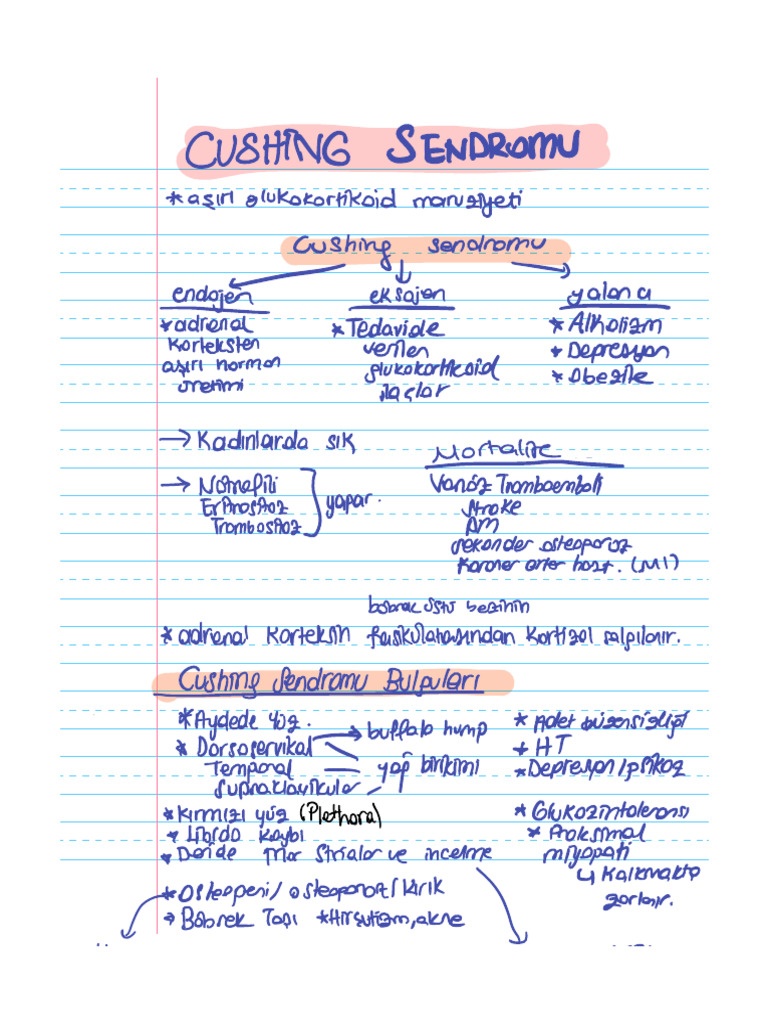 CUSHING SENDROMU
* aşırı glukokortikoid maruziyeti
Cushing sendromu
endojen
* adrenal
korteksten
aşırı hormon
üretimi
eksojen
* Tedavide
verilen
glukokortikoid
ilaçlar
yalancı
* Alkolizm
* Depresyon
* Obezite
→ Kadınlarda sık
→ Nötrofili
Eritrositoz
Trombositoz
yapar.
Mortalite
Venöz Tromboemboli
Stroke
DM
sekonder osteoporoz
Koroner arter hast. (MI)
böbrek üstü bezinin
* adrenal korteksin fasikülatasından kortizol salgılanır.
Cushing Sendromu Bulguları
* Aydede yüz.
* Dorsoservikal → buffalo hump
Temporal
supraklavikular
yağ birikimi
* Kırmızı yüz (Plethora)
* Libido kaybı
* Deride Mor Strialar ve incelme
* Osteopeni / osteoporoz / kırık
→ Böbrek Taşı * Hirsutizm, akne
* Adet düzensizliği
* HT
* Depresyon / psikoz
* Glukoz intoleransı
* Proksimal
miyopati
↳ Kalkmakta
zorlanır.